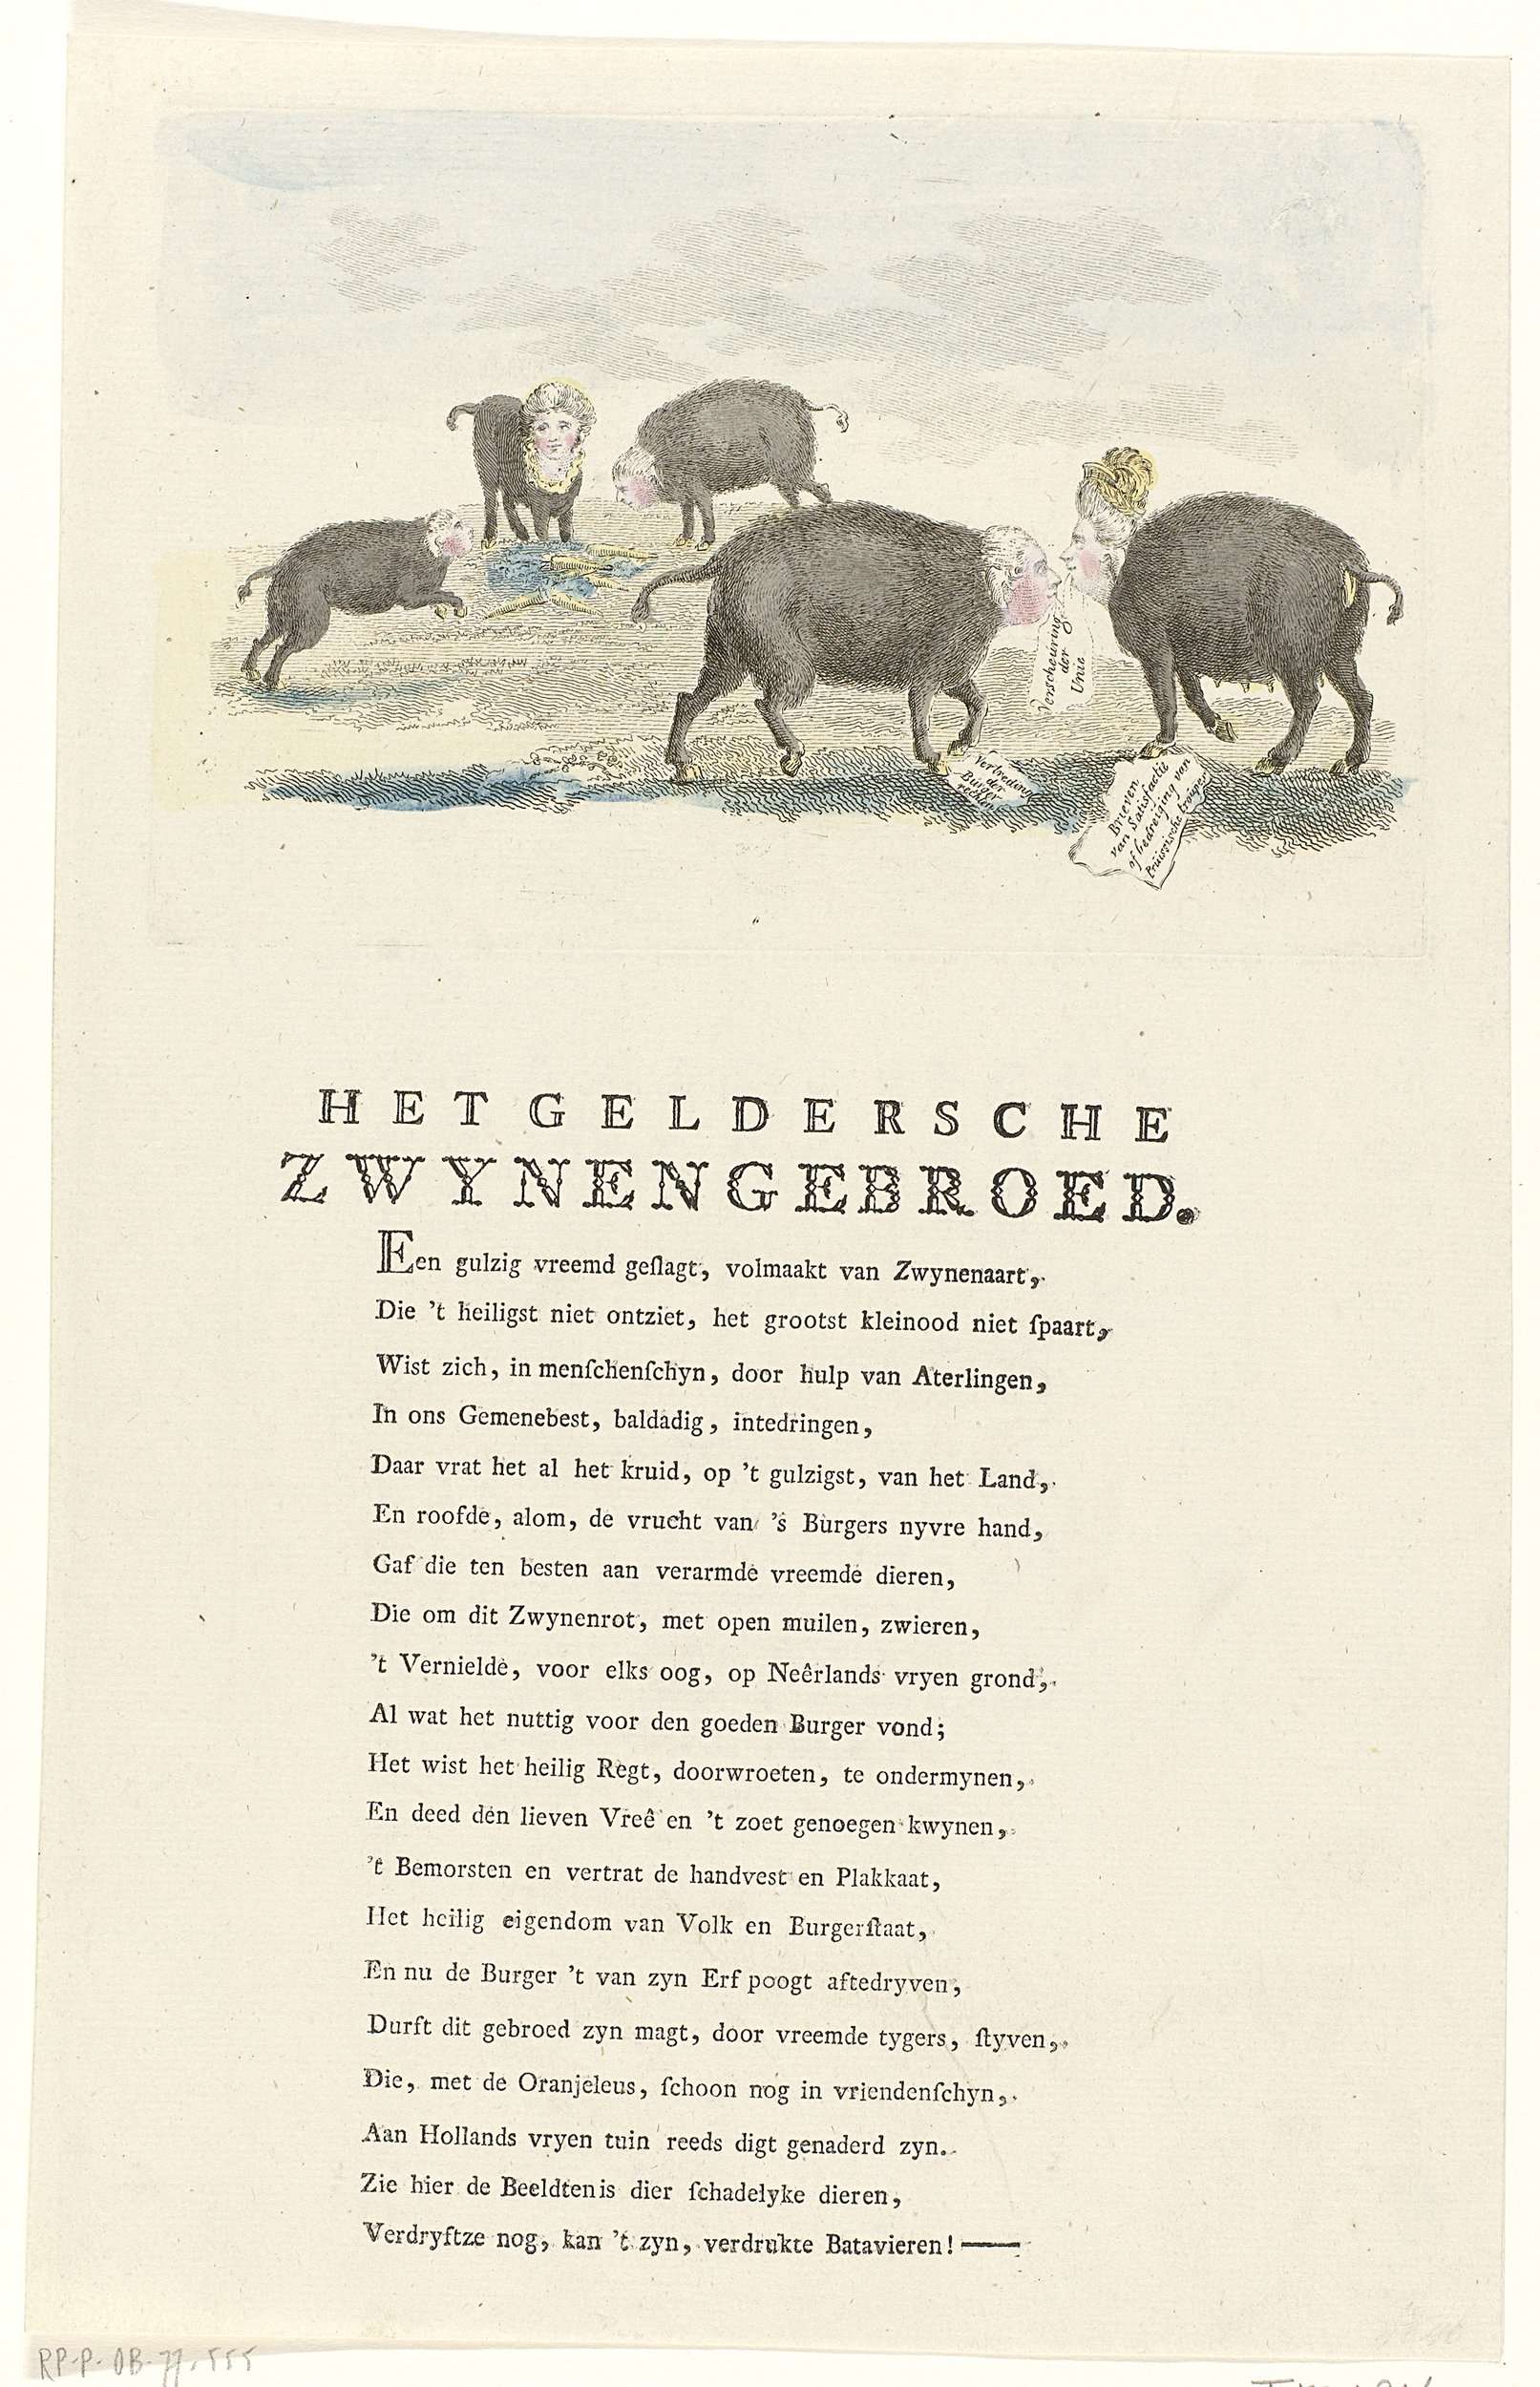 Verscheuring
der
Unie
Vertreding
der
Burger
rechten
Brieven
van Satisfactie
of bedreijing van
Pruissische troupen
HET GELDERSCHE
ZWYNENGEBROED.
Een gulzig vreemd geſlagt, volmaakt van Zwynenaart,
Die 't heiligst niet ontziet, het grootst kleinood niet ſpaart,
Wist zich, in menſchenſchyn, door hulp van Aterlingen,
In ons Gemenebest, baldadig, intedringen,
Daar vrat het al het kruid, op 't gulzigst, van het Land,
En roofde, alom, de vrucht van 's Burgers nyvre hand,
Gaf die ten besten aan verarmde vreemde dieren,
Die om dit Zwynenrot, met open muilen, zwieren,
't Vernielde, voor elks oog, op Neêrlands vryen grond,
Al wat het nuttig voor den goeden Burger vond;
Het wist het heilig Regt, doorwroeten, te ondermynen,
En deed den lieven Vreê en 't zoet genoegen kwynen,
't Bemorsten en vertrat de handvest en Plakkaat,
Het heilig eigendom van Volk en Burgerſtaat,
En nu de Burger 't van zyn Erf poogt aftedryven,
Durft dit gebroed zyn magt, door vreemde tygers, ſtyven,
Die, met de Oranjeleus, ſchoon nog in vriendenſchyn,
Aan Hollands vryen tuin reeds digt genaderd zyn.
Zie hier de Beeldtenis dier ſchadelyke dieren,
Verdryftze nog, kan 't zyn, verdrukte Batavieren! —
RP-P-OB-77.555